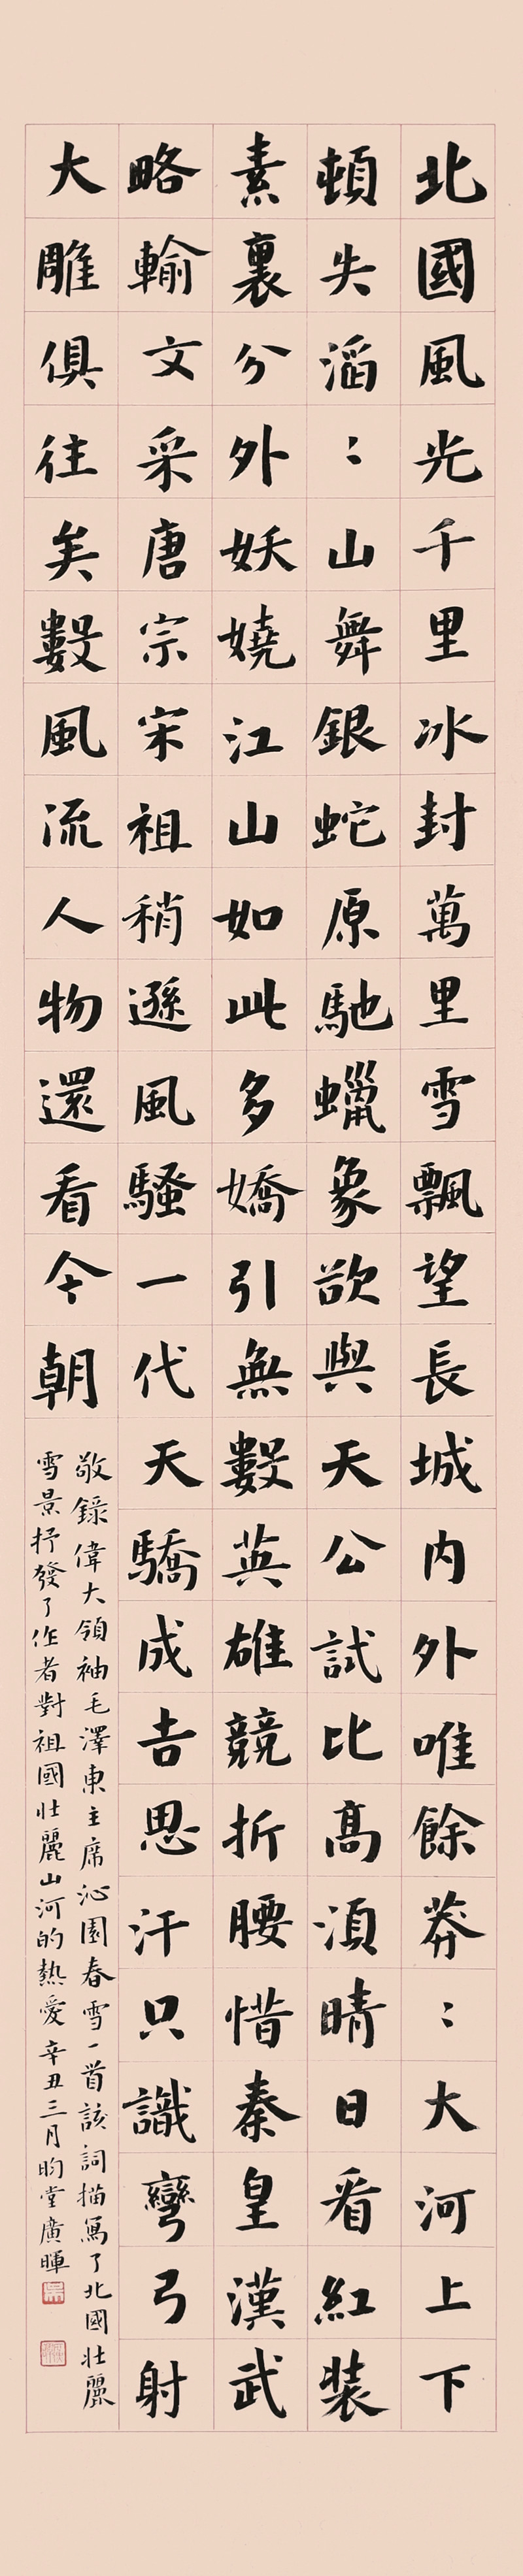 北國風光千里冰封萬里雪飄望長城内外唯餘莽：大河上下
頓失滔：山舞銀蛇原馳蠟象欲與天公試比高湏晴日看紅装
素裏分外妖嬈江山如此多嬌引無數英雄競折腰惜秦皇漢武
略輸文采唐宗宋祖稍遜風騷一代天驕成吉思汗只識彎弓射
大雕俱往矣數風流人物還看今朝
敬錄偉大領袖毛澤東主席沁園春雪一首該詞描寫了北國壯麗
雪景抒發了作者對祖國壯麗山河的熱愛辛丑三月昀堂廣暉